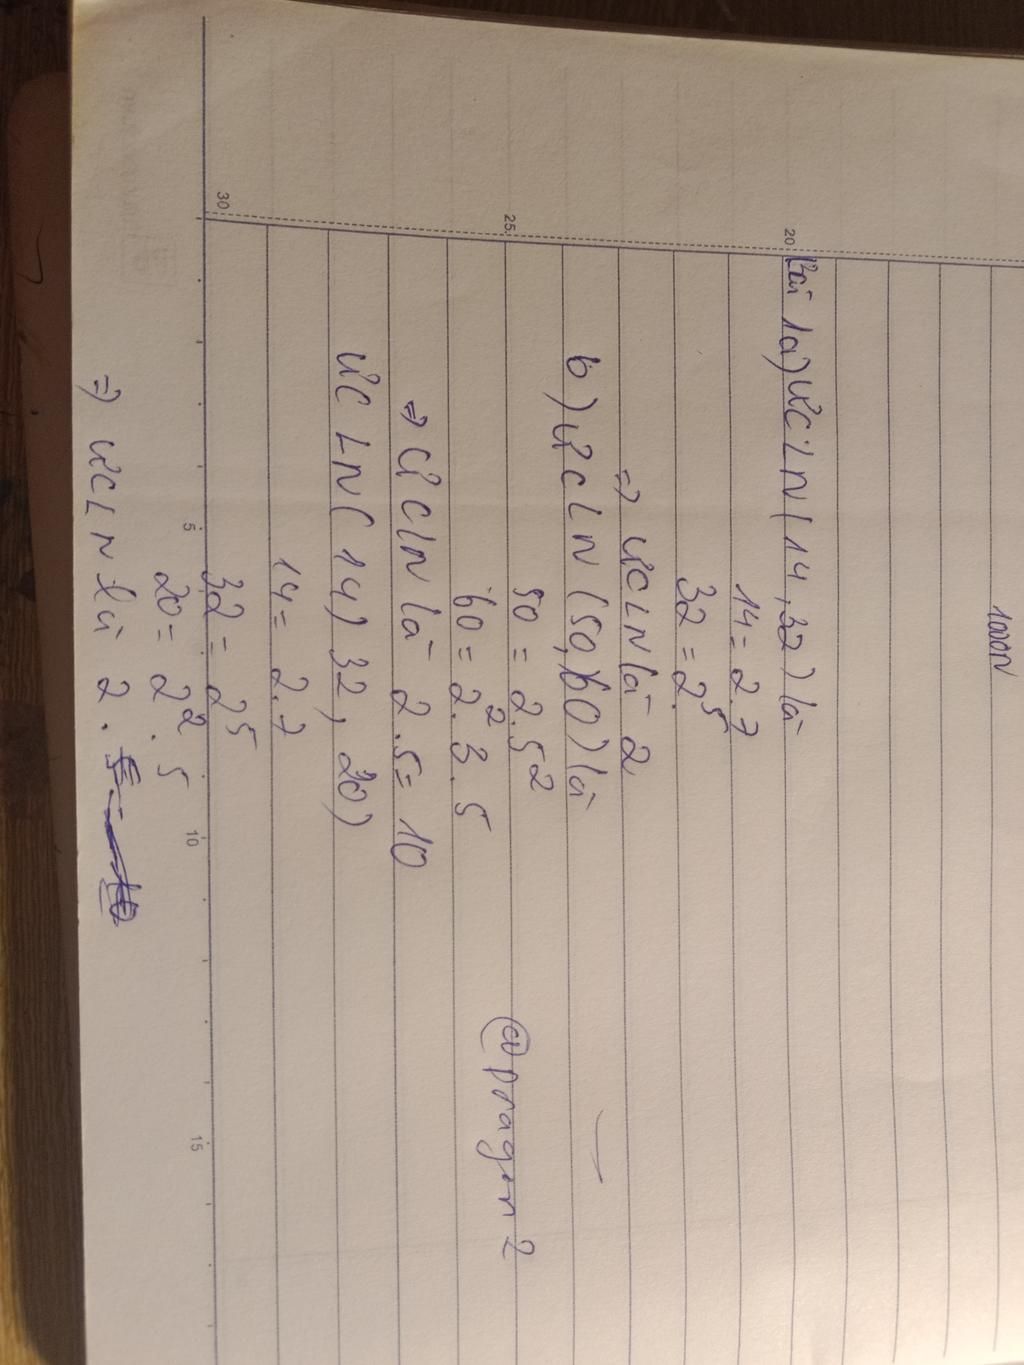 1000N
Bài 1a) ƯCLN(14,32) là
14 = 2.7
32 = 2⁵.
=> ƯCLN là 2
b) ƯCLN (50,60) là
50 = 2.5²
60 = 2².3.5
=> ƯCLN là 2.5 = 10
ƯCLN(14, 32, 20)
14 = 2.7
32 = 2⁵
20 = 2².5
=> ƯCLN là 2.
@Dragon 2
20
25
30
5
10
15